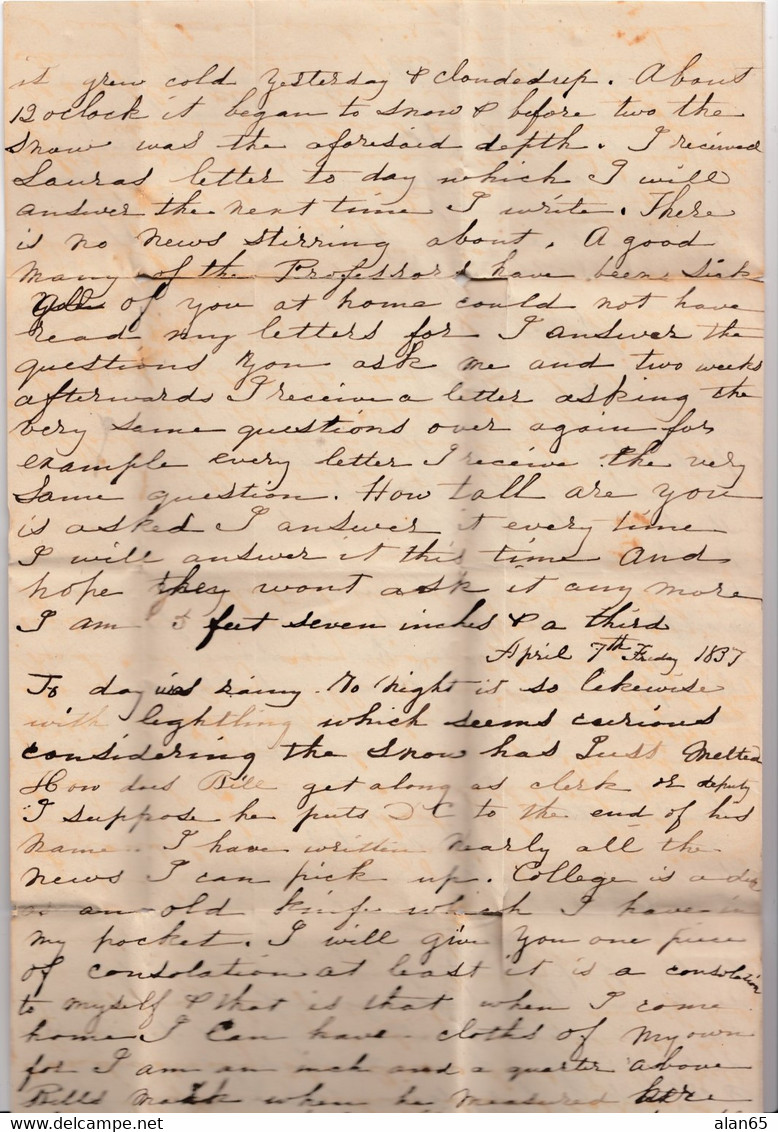 it grew cold yesterday & clouded up. About
12 oclock it began to snow & before two the
snow was the aforesaid depth. I recieved
Lauras letter to day which I will
answer the next time I write. There
is no news stirring about. A good
many of the Professors have been sick
of you at home could not have
read my letters for I answer the
questions you ask me and two weeks
afterwards I receive a letter asking the
very same questions over again for
example every letter I receive the very
same question. How tall are you
is asked I answer it every time
I will answer it this time and
hope they wont ask it any more
I am 5 feet seven inches & a third
April 7th Friday 1837
To day was rainy. To night is so likewise
with lightling which seems curious
considering the snow has just melted
How does Bill get along as clerk or deputy
I suppose he puts D C to the end of his
name. I have written nearly all the
news I can pick up. College is a
as an old knife which I have in
my pocket. I will give you one piece
of consolation at least it is a consolation
to myself & that is that when I come
home I can have cloths of my own
for I am an inch and a quarter above
Bills mark when he measured here
alan65